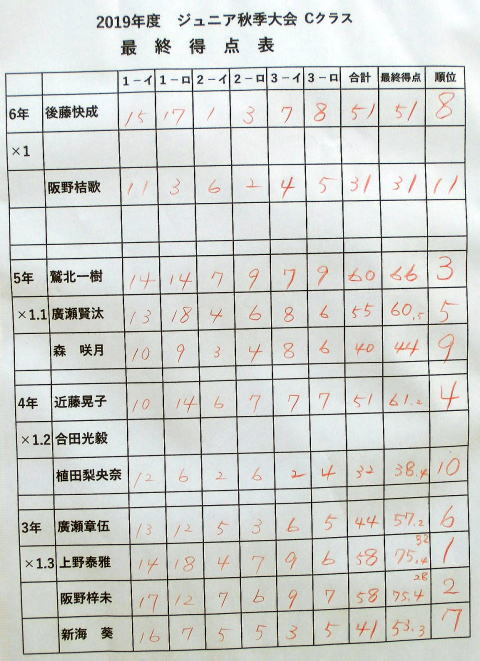 2019年度 ジュニア秋季大会 Cクラス
最 終 得 点 表
1－イ 1－ロ 2－イ 2－ロ 3－イ 3－ロ 合計 最終得点 順位
6年 後藤快成 15 17 1 3 7 8 51 51 8
×1
阪野桔歌 11 3 6 2 4 5 31 31 11
5年 鷲北一樹 14 14 7 9 7 9 60 66 3
×1.1 廣瀬賢汰 13 18 4 6 8 6 55 60.5 5
森 咲月 10 9 3 4 8 6 40 44 9
4年 近藤晃子 10 14 6 7 7 7 51 61.2 4
×1.2 合田光毅
植田梨央奈 12 6 2 6 2 4 32 38.4 10
3年 廣瀬章伍 13 12 5 3 6 5 44 57.2 6
×1.3 上野泰雅 14 18 4 7 9 6 58 75.4 32 1
阪野梓未 17 12 7 6 9 7 58 75.4 28 2
新海 葵 16 7 5 5 3 5 41 53.3 7